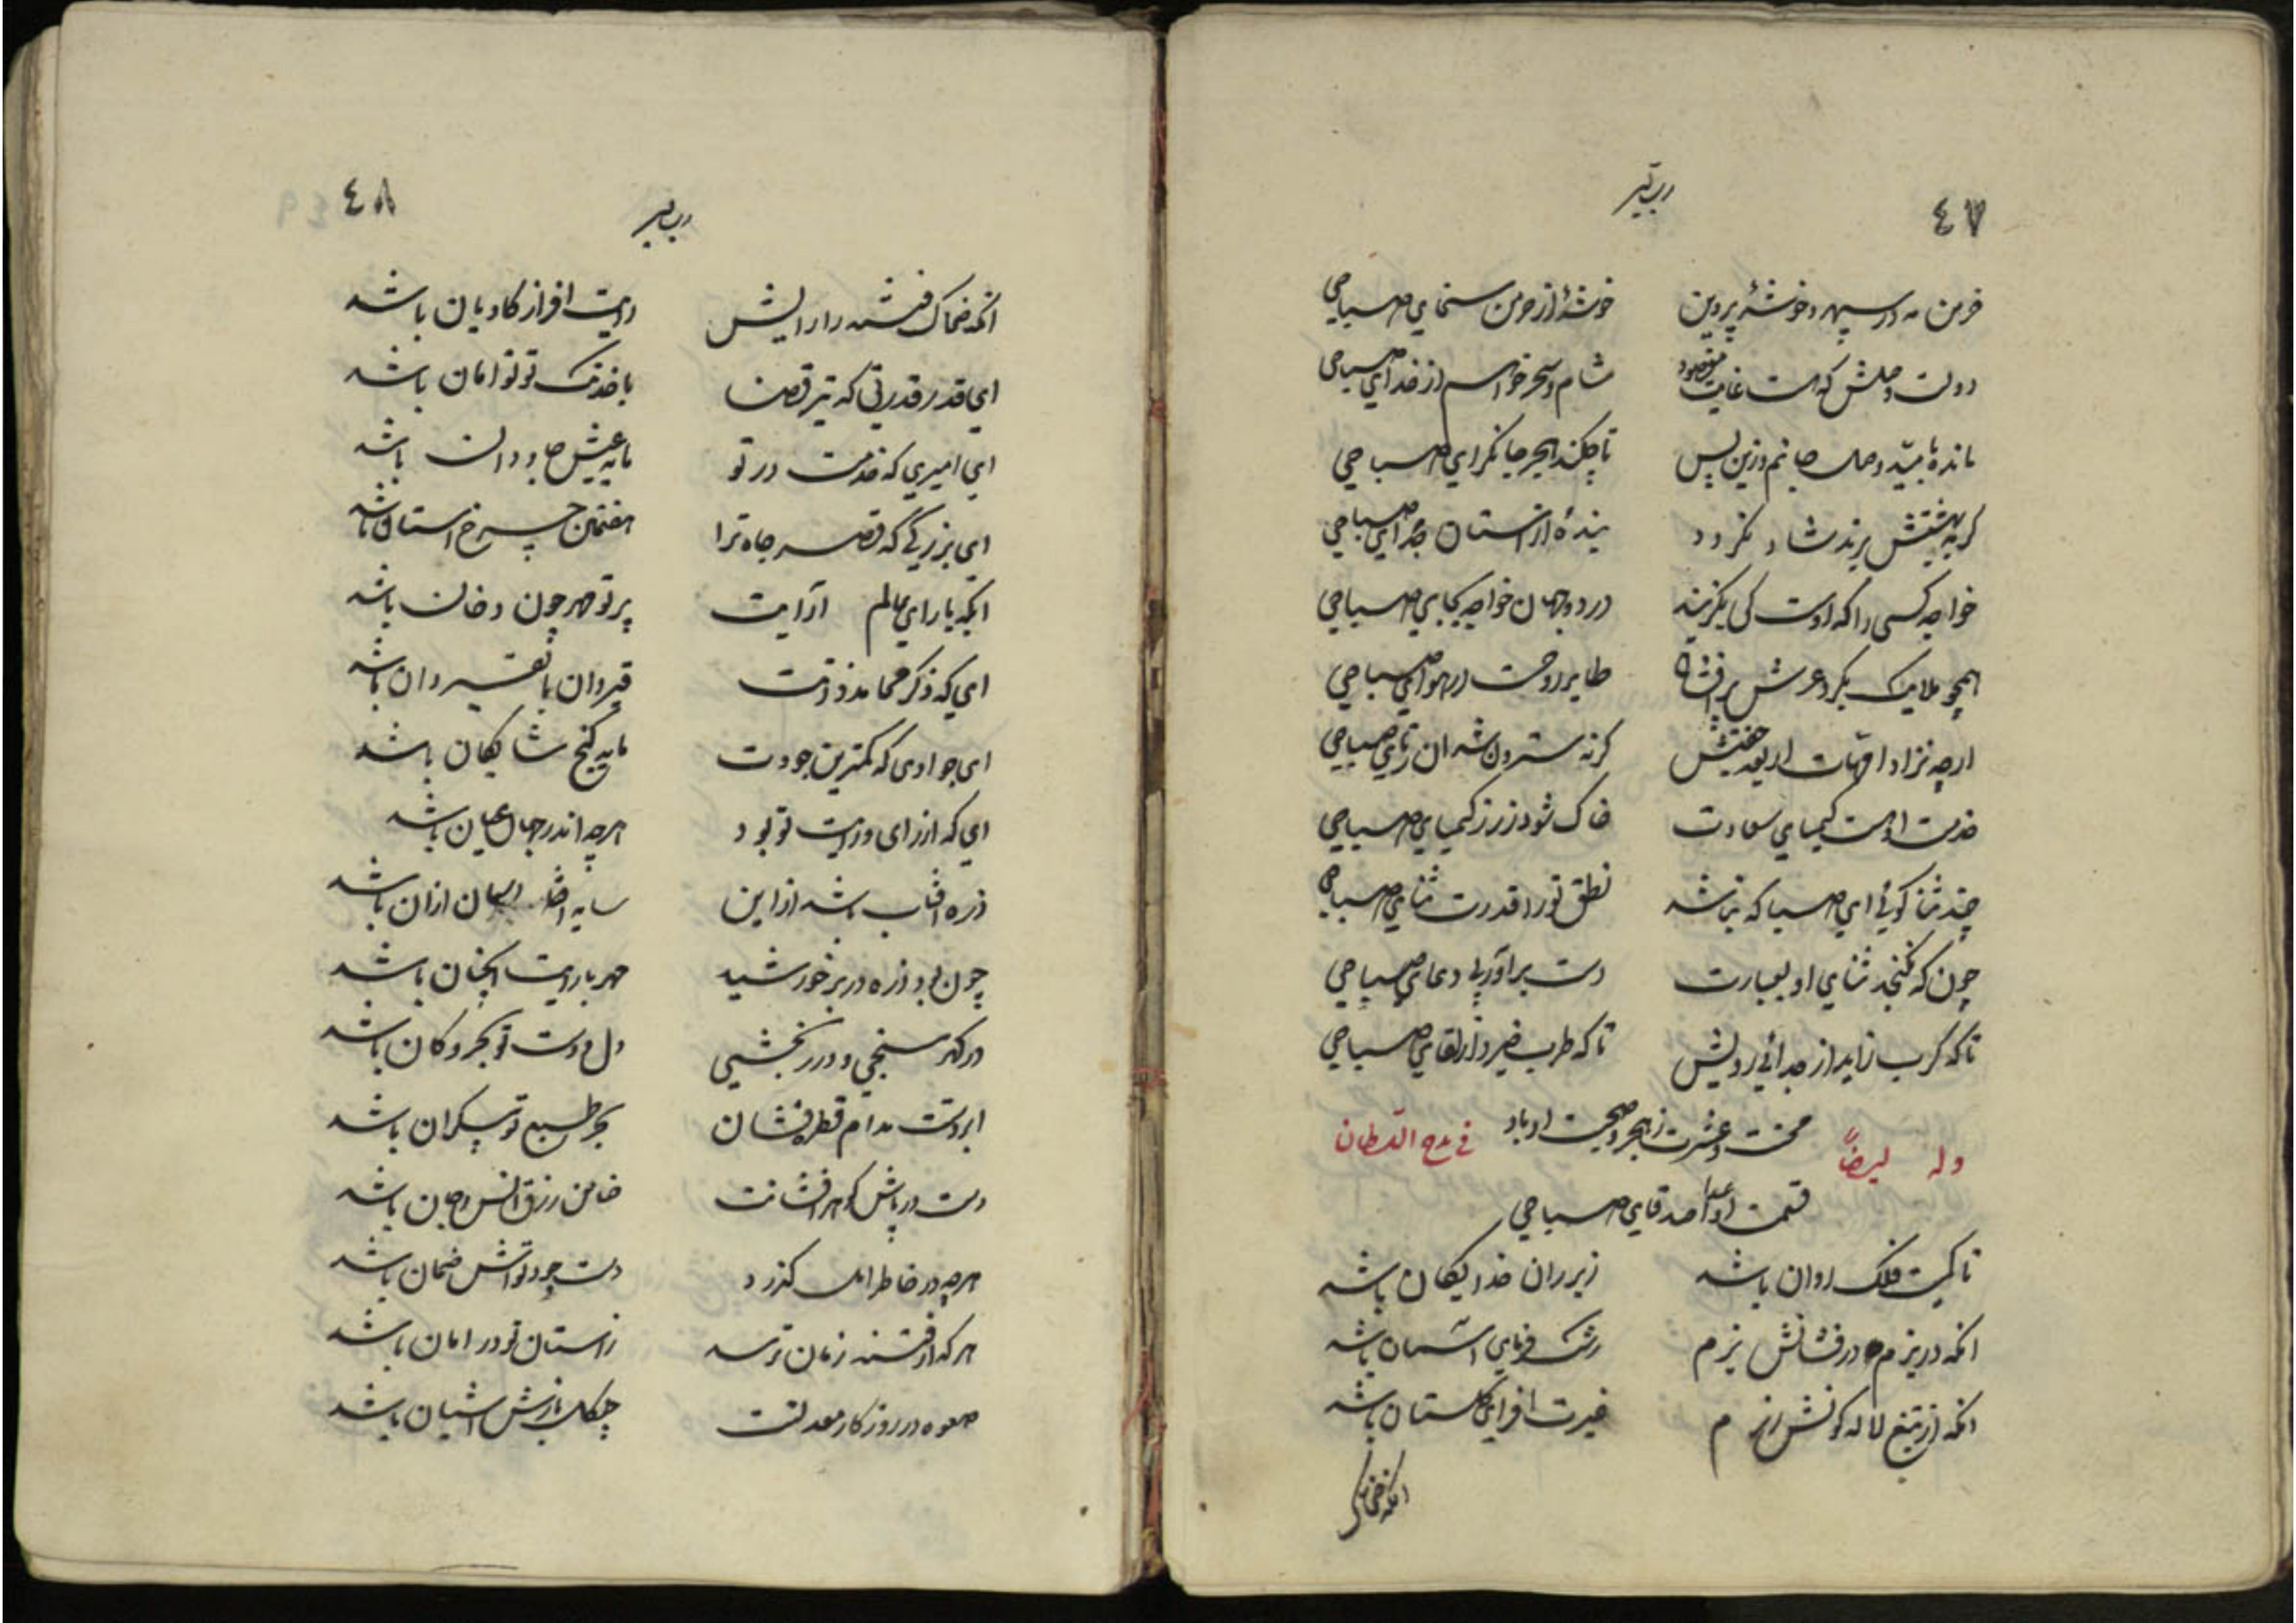 ٤٧
خرمن مه در سپهر و خوشهٔ پروین خوشهٔ از خرمن سخای صباحی
دولت وصلش که هست غایت مقصود شام و سحر خواهم از خدای صباحی
مانده بامید وصل جانم و زین پس تا چکند هجر جانکزای صباحی
کر به بهشتش برند شاد نکردد بندهٔ از استان جدای صباحی
خواجه کسی را که اوست کی بکزیند در دو جهان خواجه بجای صباحی
همچو ملایک بکرد عرش پر افشان طایر روحست در هوای صباحی
ارچه نزاد امهات اربعه جفتش کرنه سترون شدان زتای صباحی
خدمت اوهست کیمیای سعادت خاک شود زر ز کیمیای صباحی
چند ثنا کوئی ای صبا که نباشد نطق تو را قدرت ثنای صباحی
چون که نکنجد ثنای او بعبارت دست براور پی دعای صباحی
تا که کرب زاید از جدائی رویش تا که طرب خیزد از لقای صباحی
محنت و عشرت ز هجر و صحبت او باد
قسمت اعدا و اصدقای صباحی
وله ایضاً فی مدح السلطان
تا کمیت فلک روان باشد زیر ران خدایکان باشد
انکه در بزم در فشانش بزم رشک فرمای اسمان باشد
انکه از تیغ لاله کونش رزم غیرت افزای کلستان باشد
انکه ضحاک
٤٨
انکه ضحاک فتنه را رایش رایت افراز کاویان باشد
ای قدر قدرتی که تیر قضا با خدنک تو توامان باشد
ای امیری که خدمت در تو مایه عیش جاودان باشد
ای بزرکی که قصر جاه ترا هفتمین چرخ استان باشد
ایکه با رای عالم ارایت پرتو مهر چون دخان باشد
ای که ذکر محامد ذاتت قیروان تا بقیروان باشد
ای جوادی که کمترین جودت مایه کنج شایکان باشد
ای که از رای و رایت تو بود هرچه اندر جهان عیان باشد
ذره افتاب باشد از این سایه اسمان ازان باشد
چون بود ذره در بر خورشید مهر با رایت انچنان باشد
در کهر سنجی و درر بخشی دل و دست تو بحر و کان باشد
ابر دستت مدام قطره فشان بحر طبع تو بیکران باشد
دست در پاش کوهر افشانت ضامن رزق انس و جان باشد
هرچه در خاطر امل کذرد دست جود تواش ضمان باشد
هرکه از فتنه زمان ترسد زاستان تو در امان باشد
صعوه در روزکار معدلتت چنکل بازش اشیان باشد